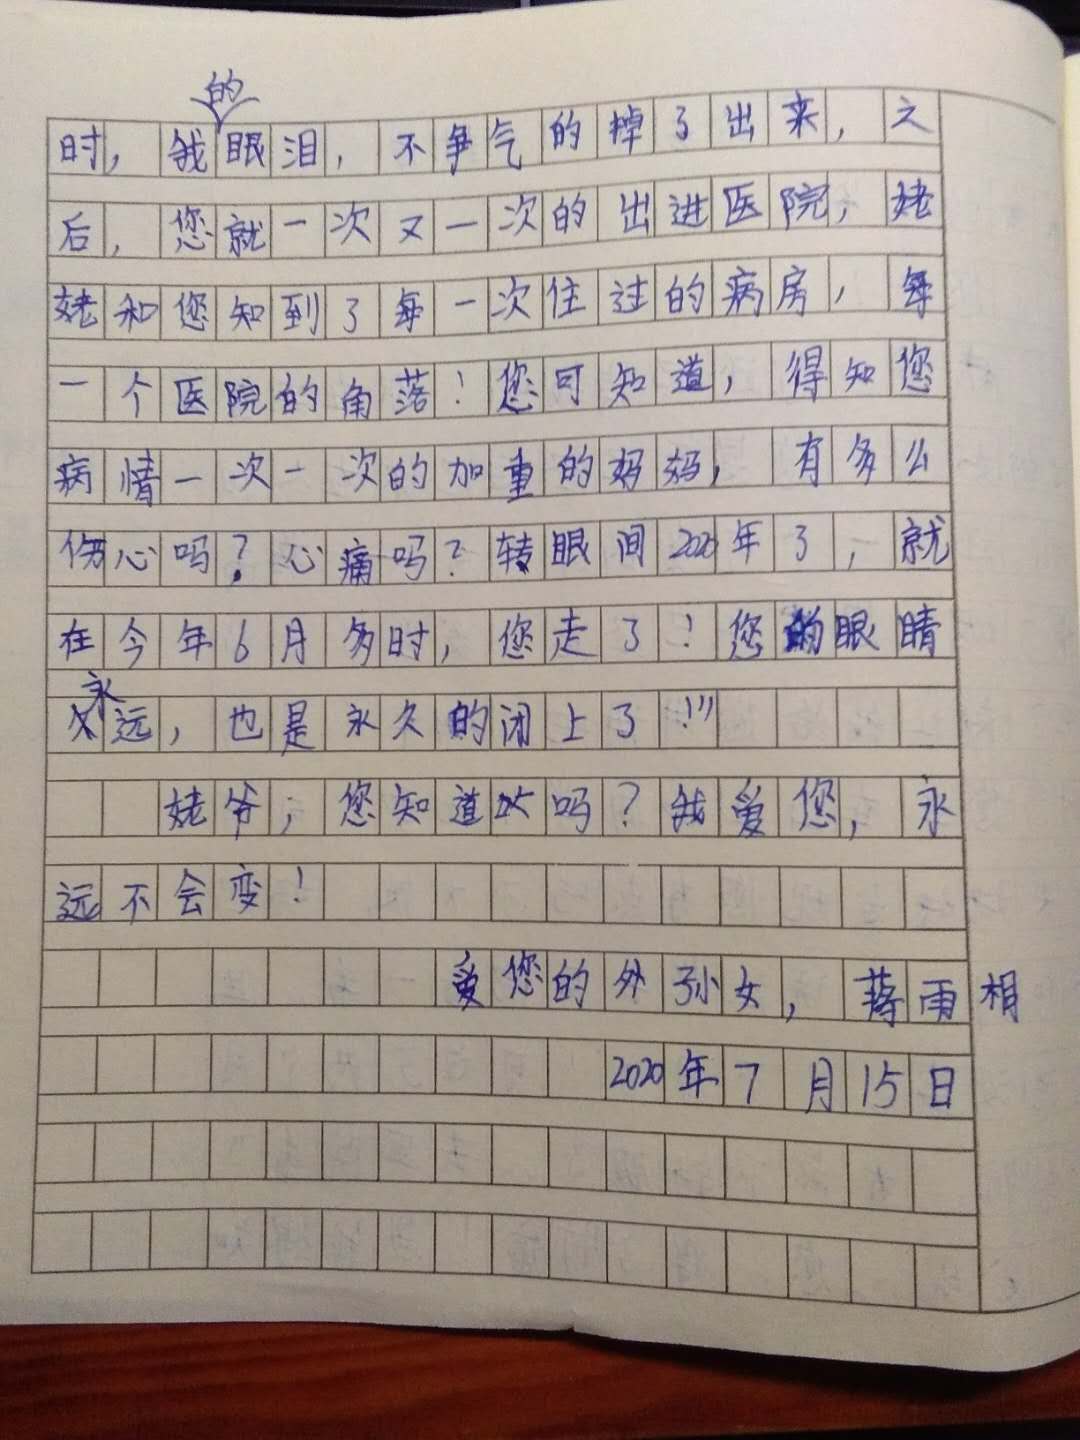 时，我的眼泪，不争气的掉了出来，之
后，您就一次又一次的出进医院，姥
姥和您知到了每一次住过的病房，每
一个医院的角落！您可知道，得知您
病情一次一次的加重的妈妈，有多么
伤心吗？心痛吗？转眼间2020年了，就
在今年6月多时，您走了！您的眼睛
永远，也是永久的闭上了！！！
姥爷；您知道吗？我爱您，永
远不会变！
爱您的外孙女，蒋雨相
2020年7月15日